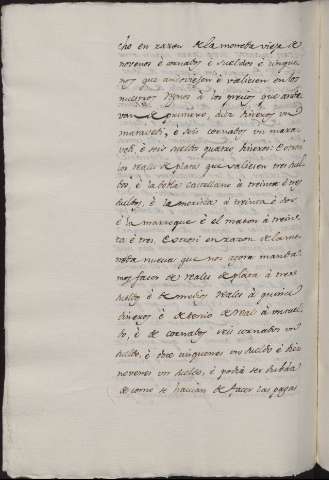 cho en razon de la moneda vieja de
novenos é cornados é sueldos é cinque
nos que anduviesen é valiesen en los
nuestros Reynos á los precios que anda
van de primero, diez dineros un
maravedi, é seis cornados un mara
vedi, é seis sueldos quatro dineros: é otrosi
los reales de plata que valiesen tres suel
dos, é la dobla castellana á treinta é tres
sueldos, é la morisca á treinta é dos
é la marroque é el maton á trein
ta é tres. é otrosi en razon de la mo
neda nueva que nos agora manda
mos facer de reales de plata á tres
sueldos é de medios reales á quince
dineros é de tercio de real á un suel
do, é de cornados seis cornados un
sueldo, é doce cinquenes un sueldo é diez
novenes un sueldo, é podia ser dubda
de como se havian de facer las pagas